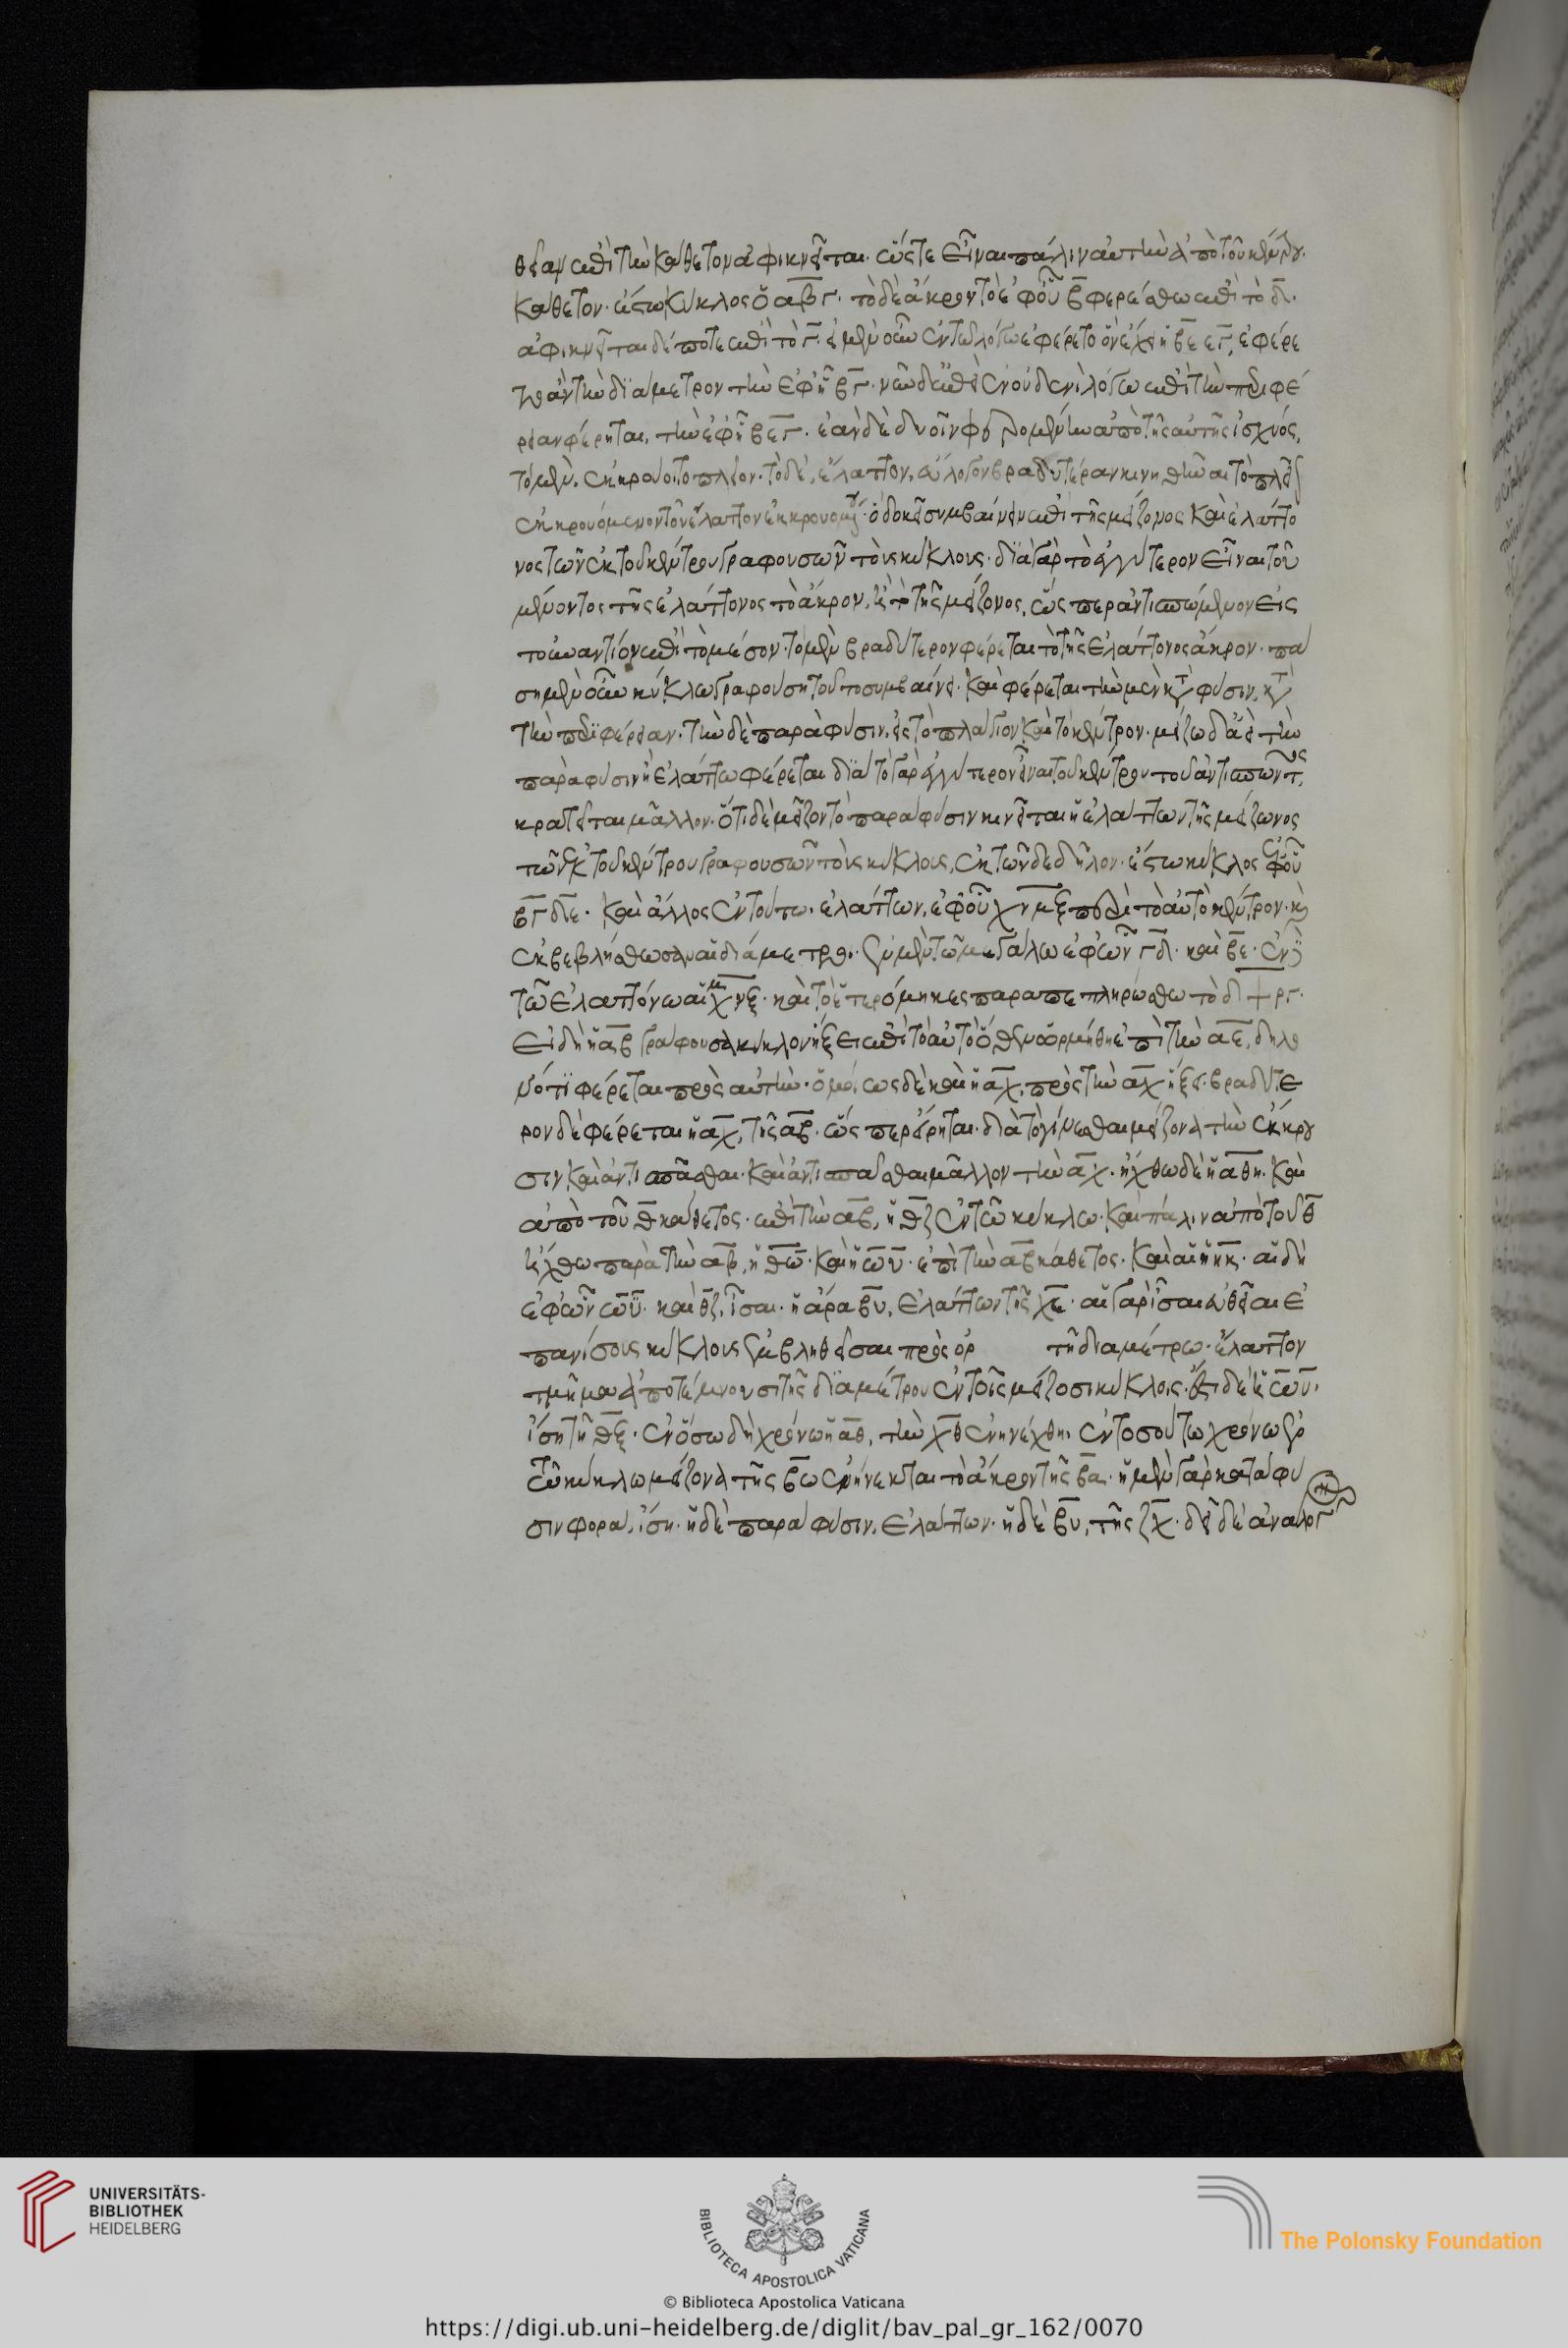 θείαν ἐπὶ τὴν κάθετον ἀφικνεῖται. ὥστε εἶναι πάλιν αὐτὴν ἀπὸ τοῦ κέντρου.
κάθετον. ἔστω κύκλος ὁ α̅β̅γ̅. τὸ δὲ ἄκρον τὸ ἐφ οὗ β̅ φερέσθω ἐπὶ τὸ δ̅.
ἀφικνεῖται δέ ποτε ἐπὶ τὸ γ̅. εἰ μὲν οὖν ἐν τῶ λόγω ἐφέρετο ὃν ἔχει ἡ β̅ε̅ ε̅γ̅, ἐφέρε
το ἂν τὴν διάμετρον τὴν ἐφ ἧ β̅γ̅. νῦν δὲ ἐπεὶ ἐν οὐδενὶ λόγω ἐπὶ τὴν περιφέ
ρειαν φέρηται, τὴν ἐφ ἧ β̅ε̅γ̅. ἐὰν δὲ δυοῖν φερομένων ἀπὸ τῆς αὐτῆς ἰσχύος,
τὸ μὲν, ἐκκρούοιτο πλέον. τὸ δὲ, ἔλαττον, εὔλογον βραδυτέραν κινηθῆναι τὸ πλεῖ
ἐκκρουόμενον τοῦ ἔλαττον ἐκκρουομένου. ὃ δοκεῖ συμβαίνειν ἐπὶ τῆς μείζονος καὶ ἐλάττο
νος τῶν ἐκ τοῦ κέντρου γραφουσῶν τοὺς κύκλους. διὰ γὰρ τὸ ἐγγύτερον εἶναι τοῦ
μένοντος τῆς ἐλάττονος τὸ ἄκρον, ἢ τὸ τῆς μείζονος, ὥς περ ἀντισπώμενον εἰς
τοὐναντίον ἐπὶ τὸ μέσον. τὸ μὲν βραδύτερον φέρεται τὸ τῆς ἐλάττονος ἄκρον. πά
ση μὲν οὖν κύκλω γραφούση τοῦτο συμβαίνει. καὶ φέρεται τὴν μὲν κατὰ φύσιν, κατὰ
τὴν περιφέρειαν. τὴν δὲ παρὰ φύσιν, εἰς τὸ πλάγιον καὶ τὸ κέντρον. μείζω δ ἀεὶ τὴν
παρὰ φύσιν ἡ ἐλάττω φέρεται διὰ τὸ γὰρ ἐγγύτερον εἶναι τοῦ κέντρου τοῦ ἀντισπῶντος,
κρατεῖται μᾶλλον. ὅτι δὲ μεῖζον τὸ παρὰ φύσιν κινεῖται ἡ ἐλάττων τῆς μείζωνος
τῶν ἐκ τοῦ κέντρου γραφουσῶν τοὺς κύκλους, ἐκ τῶν δε δῆλον. ἔστω κύκλος ἐφ οὗ
β̅γ̅δ̅ε̅. καὶ ἄλλος ἐν τούτω. ἐλάττων, ἐφ οὗ χ̅ν̅μ̅ξ̅ περὶ τὸ αὐτὸ κέντρον. καὶ
ἐκβεβλήσθωσαν αἱ διάμετροι. ἐν μὲν τῶ μεγάλω ἐφ ὧν γ̅δ̅. καὶ β̅ε̅. ἐν δὲ
τῶ ἐλάττονι αἱ μ̅χ̅ ν̅ξ̅. καὶ τὸ ἑτερόμηκες παραπεπληρώσθω τὸ δ̅ψ̅ρ̅γ̅.
Εἰ δὴ ἡ α̅β̅ γράφουσα κύκλον ἥξει ἐπὶ τὸ αὐτὸ ὅθεν ὡρμήθη ἐπὶ τὴν α̅ε̅, δῆλο
νότι φέρεται πρὸς αὐτήν. ὁμοίως δὲ καὶ ἡ α̅χ̅, πρὸς τὴν α̅χ̅ ἥξει. βραδύτε
ρον δὲ φέρεται ἡ α̅χ̅, τῆς α̅β̅. ὥς περ εἴρηται. διὰ τὸ γίνεσθαι μείζονα τὴν ἔκκρου
σιν καὶ ἀντισπᾶσθαι. καὶ ἀντισπᾶσθαι μᾶλλον τὴν α̅χ̅. ἤχθω δὲ ἡ α̅θ̅η̅. καὶ
ἀπὸ τοῦ θ̅ κάθετος. ἐπὶ τὴν α̅β̅, ἡ θ̅ζ̅ ἐν τῶ κύκλω. καὶ πάλιν ἀπὸ τοῦ θ̅
ἤχθω παρὰ τὴν α̅β̅, ἡ θ̅ω̅. καὶ ἡ ω̅υ̅. ἐπὶ τὴν α̅β̅ κάθετος. καὶ αἱ ἡ η̅κ̅. αἱ δὴ
ἐφ ὧν ω̅υ̅. καὶ θ̅ζ̅, ἴσαι. ἡ ἄρα β̅υ̅, ἐλάττων τῆς χ̅ζ̅. αἱ γὰρ ἴσαι εὐθεῖαι ἐ
πανίσους κύκλους ἐμβληθεῖσαι πρὸς ὀρ τῆ διαμέτρω. ἔλαττον
τμῆμα ἀποτέμνουσι τῆς διαμέτρου ἐν τοῖς μείζοσι κύκλοις. ἔστι δὲ ἡ ω̅υ̅.
ἴση τῆ θ̅ξ̅. ἐν ὅσω δὴ χρόνω ἡ α̅θ̅, τὴν χ̅θ̅ ἐνηνέχθη. ἐν τοσούτω χρόνω ἐν
τῶ κύκλω μείζονα τῆς β̅ω̅ ἐνήνεκται τὸ ἄκρον τῆς β̅α̅. ἡ μὲν γὰρ κατὰ φύ
σιν φορά, ἴση. ἡ δὲ παρὰ φύσιν, ἐλάττων. ἡ δὲ β̅υ̅, τῆς ζ̅χ̅. δεῖ δὲ ἀνάλογ
UNIVERSITÄTS-
BIBLIOTHEK
HEIDELBERG
BIBLIOTECA APOSTOLICA VATICANA
The Polonsky Foundation
© Biblioteca Apostolica Vaticana
https://digi.ub.uni-heidelberg.de/diglit/bav_pal_gr_162/0070